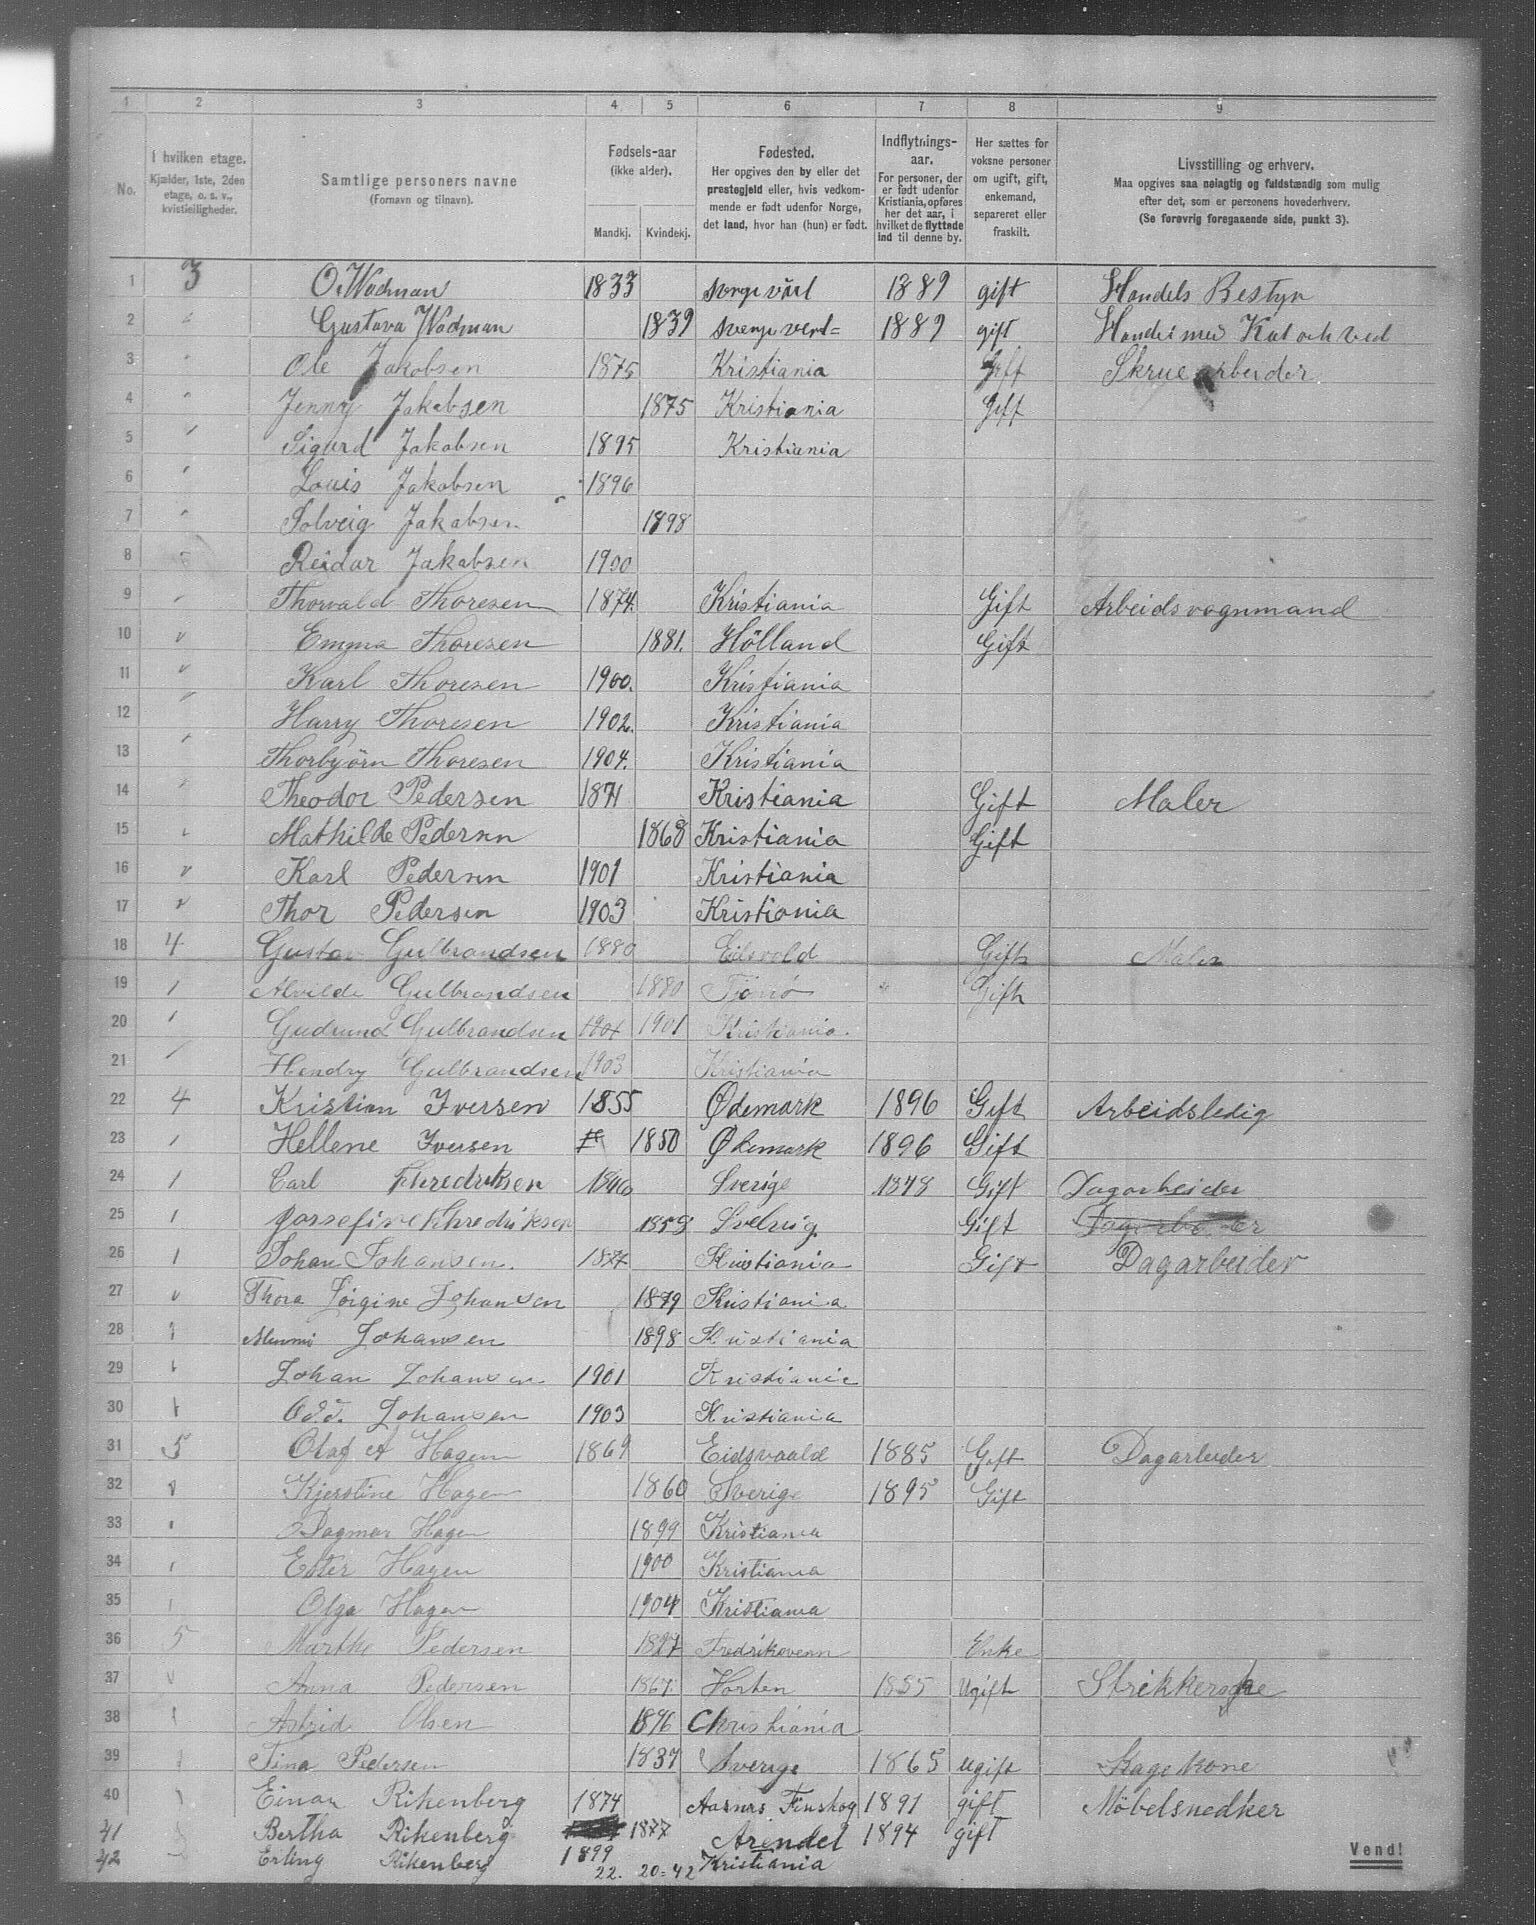 1 2 3 4 5 6 7 8 9
No.
I hvilken etage.
Kjælder, 1ste, 2den
etage, o. s. v.,
kvistleiligheder.
Samtlige personers navne
(Fornavn og tilnavn).
Fødsels-aar
(ikke alder).
Mandkj. Kvindekj.
Fødested.
Her opgives den by eller det
prestegjeld eller, hvis vedkom-
mende er født udenfor Norge,
det land, hvor han (hun) er født.
Indflytnings-
aar.
For personer, der
er født udenfor
Kristiania, opføres
her det aar, i
hvilket de flyttede
ind til denne by.
Her sættes for
voksne personer
om ugift, gift,
enkemand,
separeret eller
fraskilt.
Livsstilling og erhverv.
Maa opgives saa nøiagtig og fuldstændig som mulig
efter det, som er personens hovederhverv.
(Se forøvrig foregaaende side, punkt 3).
1 3 O. Wadman 1833 1889 gift Handels Bestyr
2 " Gustava Wadman 1839 1889 gift Handel med ved
3 " Ole Jakobsen 1875 Kristiania Gift Skruearbeider
4 " Jenny Jakobsen 1875 Kristiania Gift
5 " Sigurd Jakobsen 1895 Kristiania
6 " Louis Jakobsen 1896
7 " Solveig Jakobsen 1898
8 " Reidar Jakobsen 1900
9 " Thorvald Thoresen 1874. Kristiania Gift Arbeidsvognmand
10 " Emma Thoresen 1881. Hölland Gift
11 " Karl Thoresen 1900. Kristiania
12 " Harry Thoresen 1902. Kristiania
13 " Thorbjörn Thoresen 1904. Kristiania
14 " Theodor Pedersen 1871 Kristiania Gift Maler
15 " Mathilde Pedersen 1868 Kristiania Gift
16 " Karl Pedersen 1901 Kristiania
17 " Thor Pedersen 1903 Kristiania
18 4 Gustav Gulbrandsen 1880 Eidsvold Gift Maler
19 " Alvilde Gulbrandsen 1880 Gift
20 " Gudrund Gulbrandsen 1901 1901 Kristiania.
21 " Hendry Gulbrandsen 1903 Kristiania
22 4 Kristian Iversen 1855 Ødemark 1896 Gift Arbeidsledig
23 " Hellene Iversen 18 1850 Ødemark 1896 Gift
24 " Carl Fhredriksen 1846 Sverige 1878 Gift Dagarbeider
25 " Jossefine Fhredriksen 1858 Svelvig Gift Dagarbeider
26 " Johan Johansen. 1877 Kristiania Gift Dagarbeider
27 " Thora Jörgine Johansen 1879 Kristiania
28 " Johansen 1898 Kristiania
29 " Johan Johansen 1901 Kristiania
30 " Odd. Johansen 1903 Kristiania
31 5 Olaf A Hagen 1869 Eidsvaald 1885 Gift Dagarbeider
32 " Kjerstine Hagen 1860 Sverige 1895 Gift
33 " Dagmar Hagen 1899 Kristiania
34 " Ester Hagen 1900 Kristiania
35 " Olga Hagen 1904 Kristiania
36 5 Marthe Pedersen 1827 Fredriksvern Enke
37 " Anna Pedersen 1867. Horten 1885 Ugift Strikkerske
38 " Astrid Olsen 1896 Christiania
39 " Tina Pedersen 1837 Sverige 1865 ugift Kagekone
40 " Einar Rikenberg 1874 Aasnes Finskog 1891 gift Möbelsnedker
41 " Bertha Rikenberg 1877 Arendel 1894 gift
42 " Erling Rikenberg 1899 Kristiania
22. 20=42
Vend!